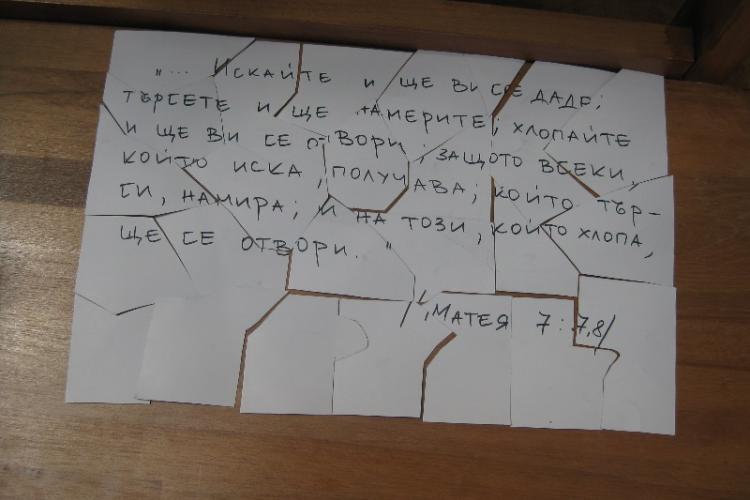 "... Искайте и ще ви се даде;
търсете и ще намерите; хлопайте
и ще ви се отвори, защото всеки,
който иска, получава; който тър-
си, намира; и на този, който хлопа,
ще се отвори. "
/Матея 7:7,8/